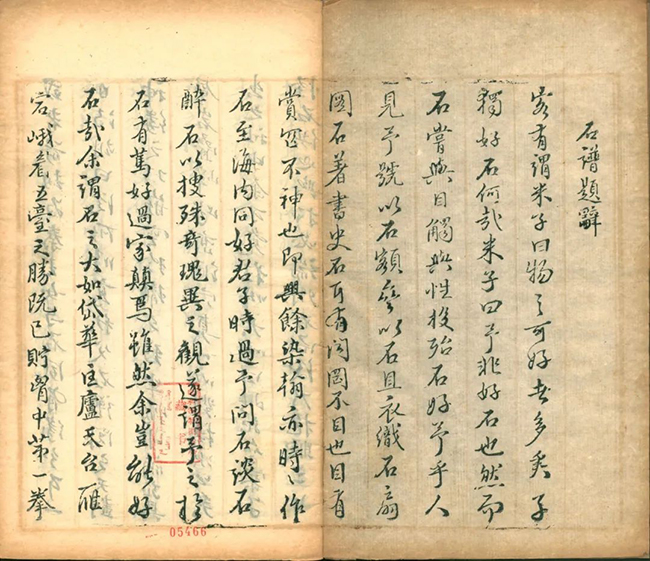 石譜題辭
客有謂米子曰物之可好者多矣子
獨好石何哉米子曰予非好石也然而
石嘗與目觸與性投殆石好予乎人
見予號以石額齋以石且衣織石扇
圖石著書史石耳有聞罔不目也目有
賞罔不神也即興餘染翰亦時々作
石至海內同好君子時過予問石談石
醉石以搜殊奇瑰異之觀遂謂予之於
石有篤好過家顛焉雖然余豈能好
石哉余謂石之大如岱華匡廬天台雁
宕峨眉五臺之勝既已貯胷中第一拳
05466